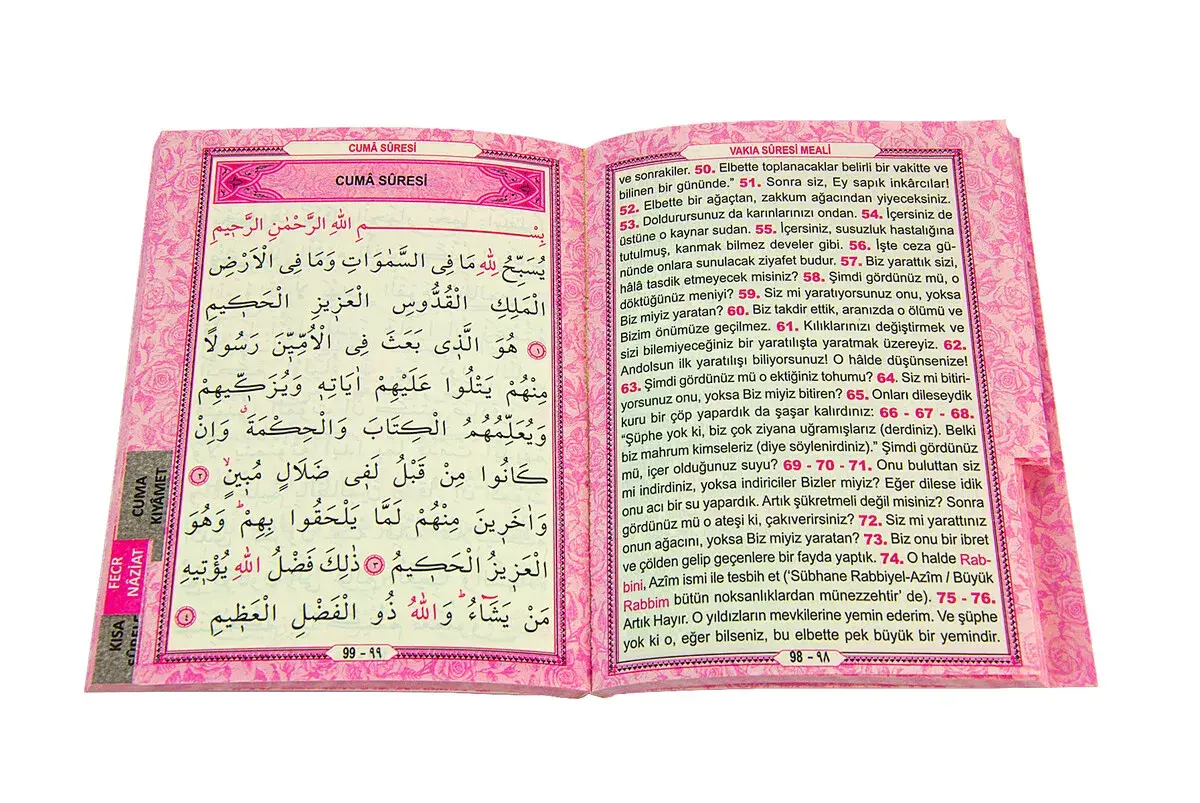 CUMÂ SÛRESİ
CUMÂ SÛRESİ
بِسْــــــــمِ اللهِ الرَّحْمٰنِ الرَّحٖيمِ
يُسَبِّحُ لِلّٰهِ مَا فِى السَّمٰوَاتِ وَمَا فِى الْاَرْضِ
الْمَلِكِ الْقُدُّوسِ الْعَزٖيزِ الْحَكٖيمِ
﴿١﴾ هُوَ الَّذٖى بَعَثَ فِى الْاُمِّيّٖنَ رَسُولًا
مِنْهُمْ يَتْلُوا عَلَيْهِمْ اٰيَاتِهٖ وَيُزَكّٖيهِمْ
وَيُعَلِّمُهُمُ الْكِتَابَ وَالْحِكْمَةَۗ وَاِنْ
كَانُوا مِنْ قَبْلُ لَفٖى ضَلَالٍ مُبٖينٍۙ ﴿٢﴾
وَاٰخَرٖينَ مِنْهُمْ لَمَّا يَلْحَقُوا بِهِمْۜ وَهُوَ
الْعَزٖيزُ الْحَكٖيمُ ﴿٣﴾ ذٰلِكَ فَضْلُ اللهِ يُؤْتٖيهِ
مَنْ يَشَٓاءُۜ وَاللهُ ذُو الْفَضْلِ الْعَظٖيمِ ﴿٤﴾
99 - ٩٩
CUMA
KIYÂMET
FECR
NÂZİAT
KISA
VAKIA SÛRESİ MEALİ
ve sonrakiler. 50. Elbette toplanacaklar belirli bir vakitte ve
bilinen bir gününde.” 51. Sonra siz, Ey sapık inkârcılar!
52. Elbette bir ağaçtan, zakkum ağacından yiyeceksiniz.
53. Doldurursunuz da karınlarınızı ondan. 54. İçersiniz de
üstüne o kaynar sudan. 55. İçersiniz, susuzluk hastalığına
tutulmuş, kanmak bilmez develer gibi. 56. İşte ceza gü-
nünde onlara sunulacak ziyafet budur. 57. Biz yarattık sizi,
hâlâ tasdik etmeyecek misiniz? 58. Şimdi gördünüz mü, o
döktüğünüz meniyi? 59. Siz mi yaratıyorsunuz onu, yoksa
Biz miyiz yaratan? 60. Biz takdir ettik, aranızda o ölümü ve
Bizim önümüze geçilmez. 61. Kılıklarınızı değiştirmek ve
sizi bilemiyeceğiniz bir yaratılışta yaratmak üzereyiz. 62.
Andolsun ilk yaratılışı biliyorsunuz! O hâlde düşünsenize!
63. Şimdi gördünüz mü o ektiğiniz tohumu? 64. Siz mi bitiri-
yorsunuz onu, yoksa Biz miyiz bitiren? 65. Onları dileseydik
kuru bir çöp yapardık da şaşar kalırdınız: 66 - 67 - 68.
“Şüphe yok ki, biz çok ziyana uğramışlarız (derdiniz). Belki
biz mahrum kimseleriz (diye söylenirdiniz).” Şimdi gördünüz
mü, içer olduğunuz suyu? 69 - 70 - 71. Onu buluttan siz
mi indirdiniz, yoksa indiriciler Bizler miyiz? Eğer dilese idik
onu acı bir su yapardık. Artık şükretmeli değil misiniz? Sonra
gördünüz mü o ateşi ki, çakıverirsiniz? 72. Siz mi yarattınız
onun ağacını, yoksa Biz miyiz yaratan? 73. Biz onu bir ibret
ve çölden gelip geçenlere bir fayda yaptık. 74. O halde Rab-
bini, Azîm ismi ile tesbih et (‘Sübhane Rabbiyel-Azîm / Büyük
Rabbim bütün noksanlıklardan münezzehtir’ de). 75 - 76.
Artık Hayır. O yıldızların mevkilerine yemin ederim. Ve şüphe
yok ki o, eğer bilseniz, bu elbette pek büyük bir yemindir.
98 - ٩٨